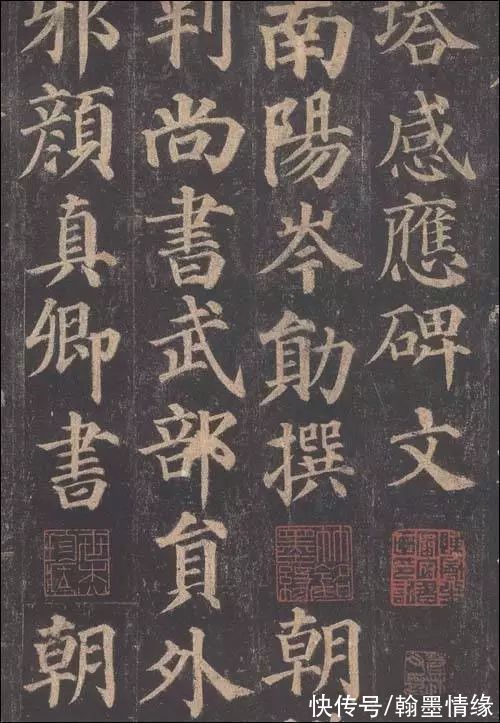 塔感應碑文
南陽岑勛撰 朝
判尚書武部員外
邪顏真卿書 朝
快传号/翰墨情缘